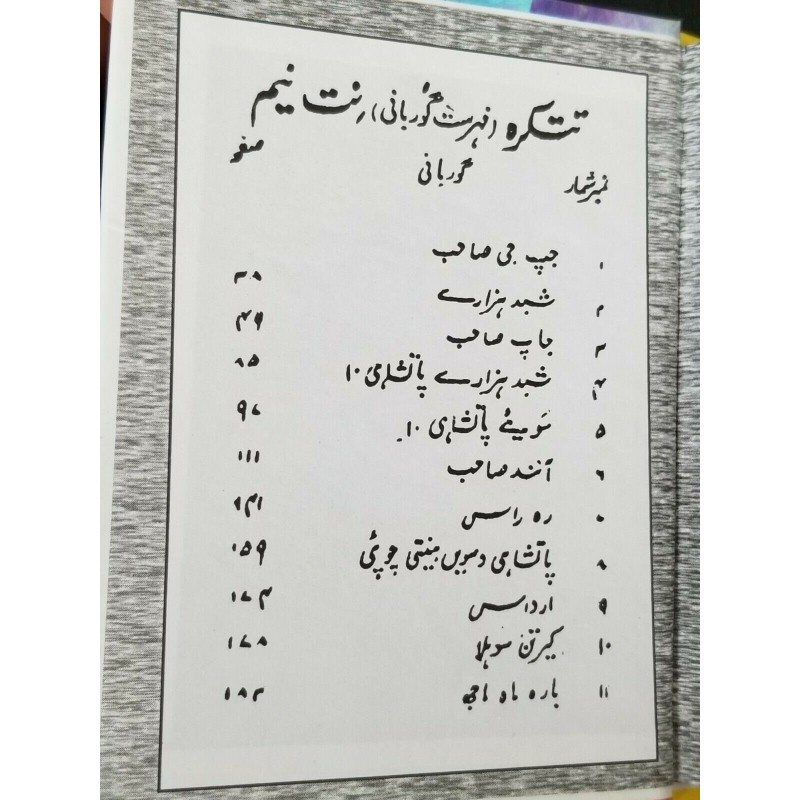 تتکرہ (فہرست گوربانی) نت نیم
نمبر شمار گوربانی صفحہ
۱ جپ جی صاحب
۲ شبد ہزارے ۳۸
۳ جاپ صاحب ۴۹
۴ شبد ہزارے پاتشاہی ۱۰ ۸۵
۵ سویئے پاتشاہی ۱۰ ۹۷
۶ آنند صاحب ۱۱۱
۷ رہ راس ۱۴۱
۸ پاتشاہی دسویں بینتی چوپئی ۱۵۹
۹ ارداس ۱۷۴
۱۰ کیرتن سوہلا ۱۷۸
۱۱ بارہ ماہ ماجھ ۱۸۳